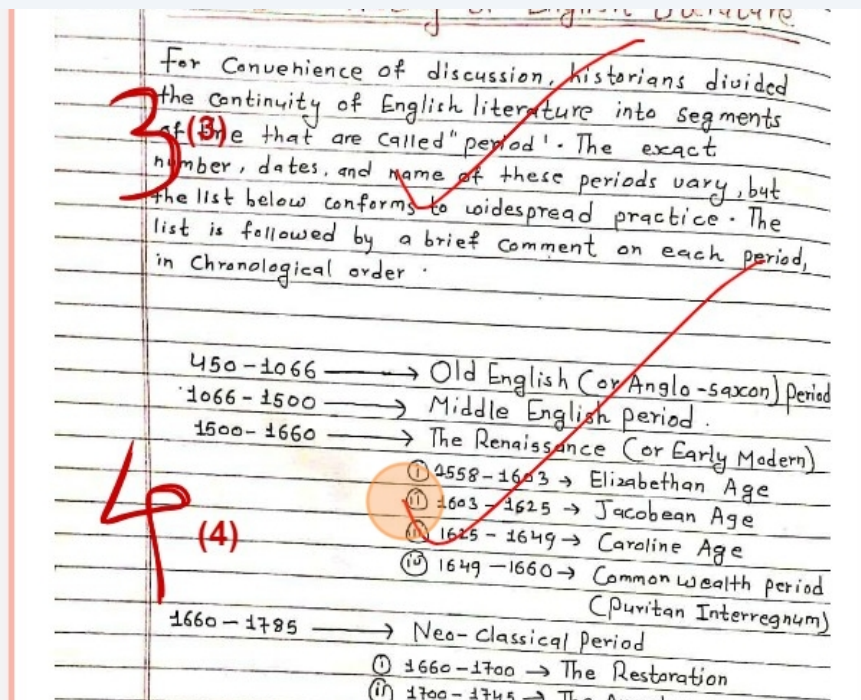 of English
For Convenience of discussion, historians divided
the continuity of English literature into segments
3 (3)
of time that are called "period'. The exact
number, dates, and name of these periods vary, but
the list below conforms to widespread practice. The
list is followed by a brief comment on each period,
in Chronological order.
450-1066 → Old English (or Anglo-saxon) Period
1066-1500 → Middle English period.
1500-1660 → The Renaissance (or Early Modern)
(i) 1558-1603 → Elizabethan Age
(ii) 1603-1625 → Jacobean Age
(iii) 1625-1649 → Caroline Age
4 (4)
(iv) 1649-1660 → Common wealth period
(Puritan Interregnum)
1660-1785 → Neo-classical Period
(i) 1660-1700 → The Restoration
(ii) 1700-1745 → The